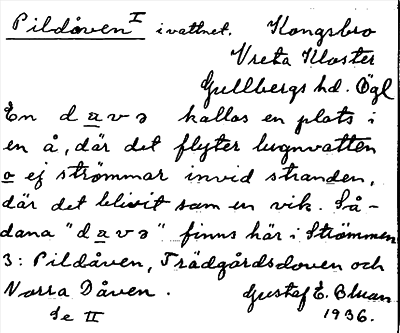 Pildåven I i vattnet. Kongsbro
Vreta Kloster
Gullbergs hd. Ögl
En davə kallas en plats i
en å, där det flyter lugnvatten
o ej strömmar invid stranden,
där det blivit som en vik. Så-
dana "davə" finns här i Strömmen
3: Pildåven, Trädgårdsdoven och
Norra Dåven. Gustaf E. Bluan
Se II 1936.